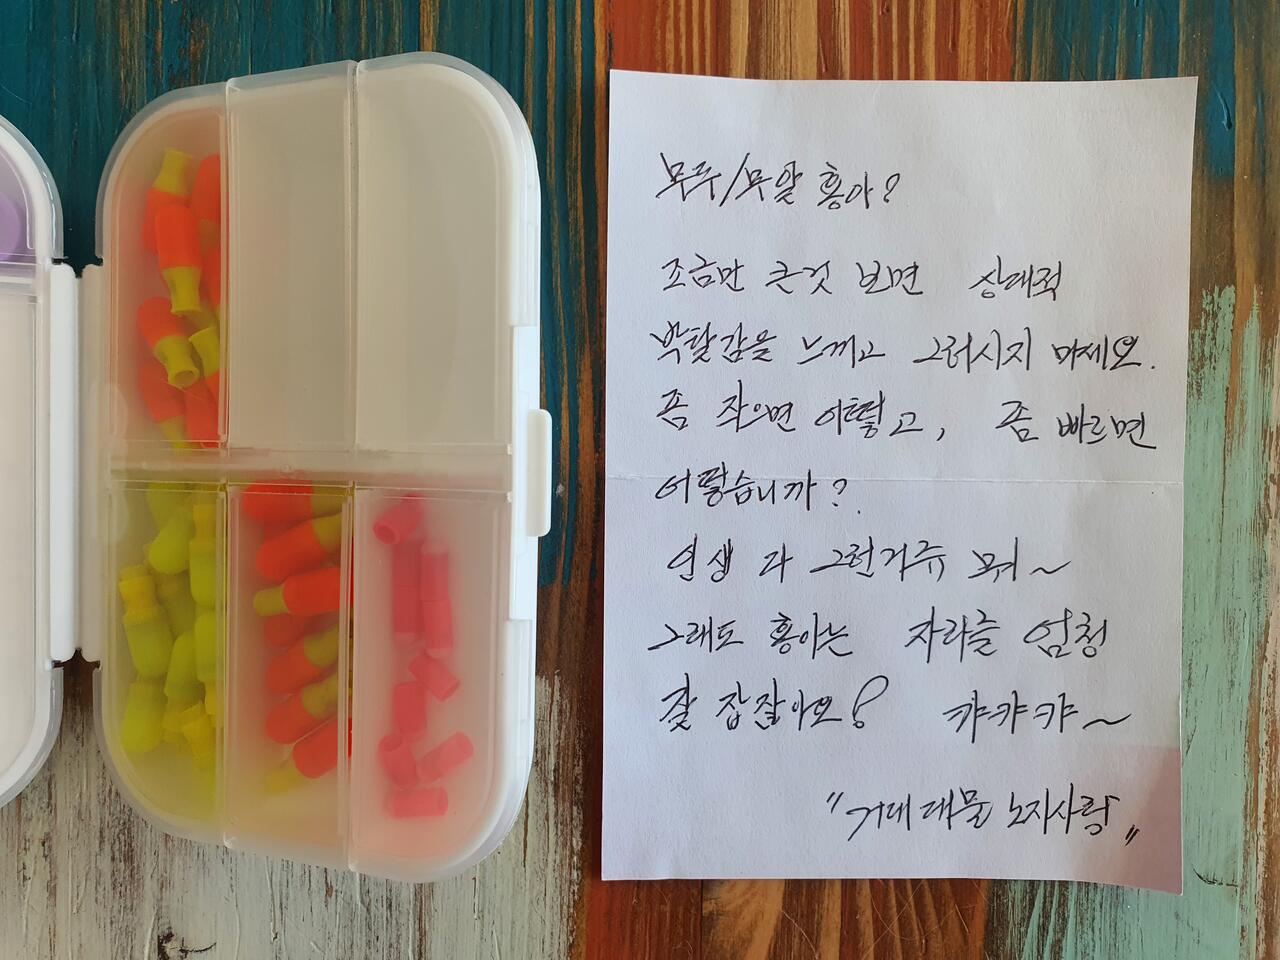 무주/무알 홍아?
조금만 큰것 보면 상대적
박탈감을 느끼고 그러시지 마세요.
좀 작으면 어떻고, 좀 빠르면
어떻습니까?
인생 다 그런거쥬 뭐~
그래도 홍아는 자리를 엄청
잘 잡잖아요! 캬캬캬~
"거대 대물 노지사랑"